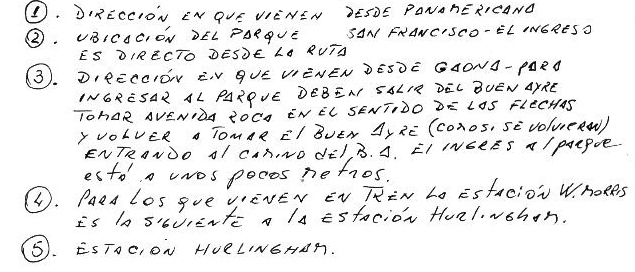 1. DIRECCIÓN EN QUE VIENEN DESDE PANAMERICANA
2. UBICACIÓN DEL PARQUE SAN FRANCISCO - EL INGRESO
ES DIRECTO DESDE LA RUTA
3. DIRECCIÓN EN QUE VIENEN DESDE GAONA - PARA
INGRESAR AL PARQUE DEBEN SALIR DEL BUEN AYRE
TOMAR AVENIDA ROCA EN EL SENTIDO DE LAS FLECHAS
Y VOLVER A TOMAR El BUEN AYRE (COMO SI SE VOLVIERAN)
ENTRANDO Al CAMINO del B.A. El INGRES Al parque
está a unos pocos metros.
4. PARA LOS QUE VIENEN EN TREN LA ESTACIÓN W. MORRIS
ES lA SIGUIENTE A lA ESTACIÓN HURLINGHAM.
5. ESTACION HURLINGHAM.